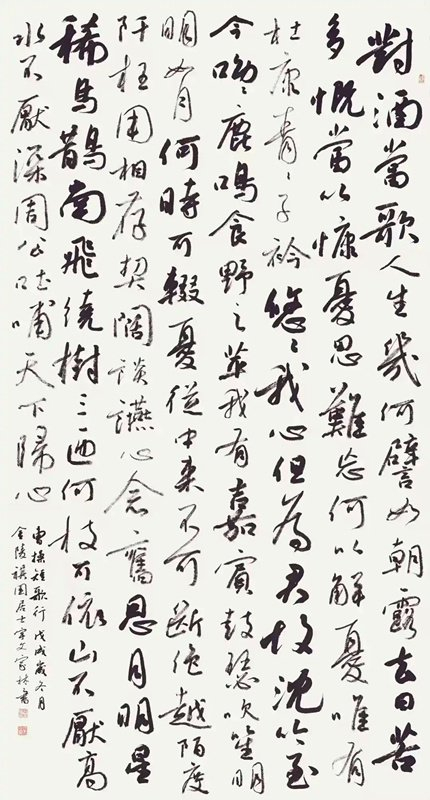 對酒當歌人生幾何譬如朝露去日苦
多慨當以慷憂思難忘何以解憂唯有
杜康青〻子衿悠〻我心但為君故沈吟至
今呦〻鹿鳴食野之苹我有嘉賓鼓瑟吹笙明
明如月何時可輟憂從中來不可斷絕越陌度
阡枉用相存契闊談讌心念〻舊恩月明星
稀烏鵲南飛繞樹三匝何枝可依山不厭高
水不厭深周公吐哺天下歸心
曹操短歌行戊戌歲冬月
金陵園居士宋文家林書